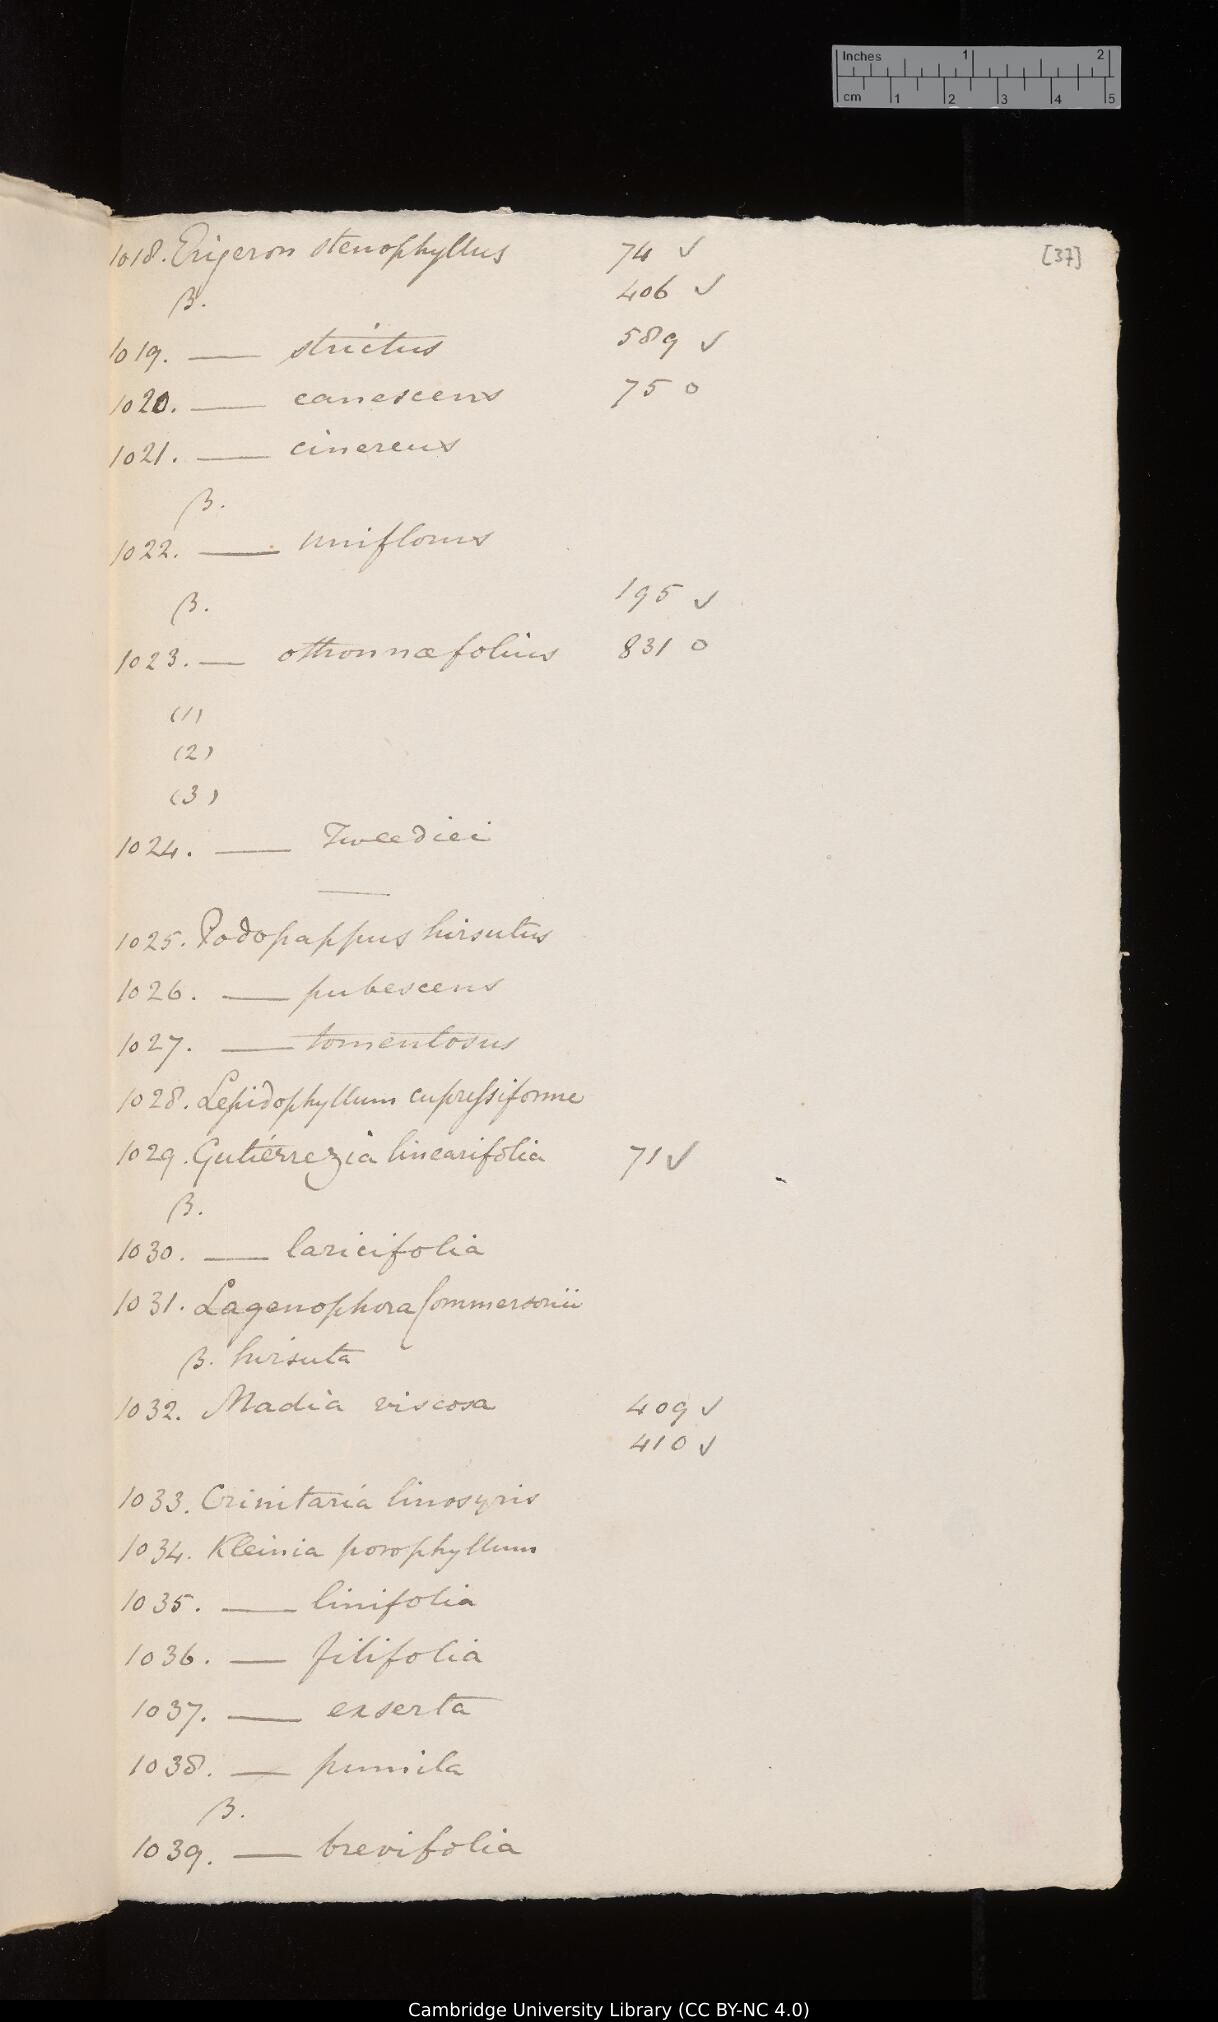 Inches 1 2
cm 1 2 3 4 5
[37]
1018. Erigeron stenophyllus 74 ✓
β. 406 ✓
1019. — strictus 589 ✓
1020. — canescens 75 o
1021. — cinereus
β.
1022. — uniflorus
β. 195 ✓
1023. — othonnæfolius 831 o
(1)
(2)
(3)
1024. — Tweediei
1025. Podopappus hirsutus
1026. — pubescens
1027. — tomentosus
1028. Lepidophyllum cupressiforme
1029. Gutierrezia linearifolia 71 ✓
β.
1030. — laricifolia
1031. Lagenophora Commersonii
β. hirsuta
1032. Madia viscosa 409 ✓
410 ✓
1033. Crinitaria linosyris
1034. Kleinia porophyllum
1035. — linifolia
1036. — filifolia
1037. — exserta
1038. — pumila
β.
1039. — brevifolia
Cambridge University Library (CC BY-NC 4.0)